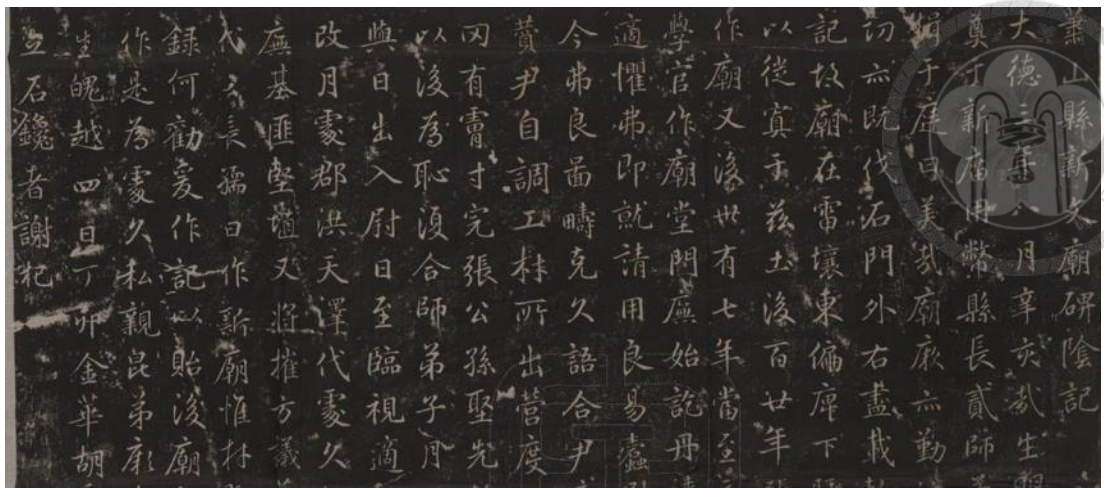 蕭山縣新文廟碑陰記
大德三年八月辛亥哉生明
奠于新廟用幣縣長貳師
于庭曰美哉廟厥亦勤
切亦既伐石門外右盡載
記故廟在雷壤東偏庳下
以從寘于茲土後百廿年
作廟又後卅有七年當至
學官作廟堂門廡始訖丹
適懼弗即就請用良易蠹
今弗良啚疇克久語合尹
蕢尹自調工材所出營度
罔有霣寸完張公孫堅先
以後為恥湏合師弟子月
與日出入尉日至臨視適
改月霣郡洪天澤代霣久
廡基匪堅甓又將摧方議
代者長孺曰作新廟惟材
録何勸爰作記以貽後廟
作是為霣久私親昆弟
生魄越四日丁卯金華胡
立石鑱者謝杞